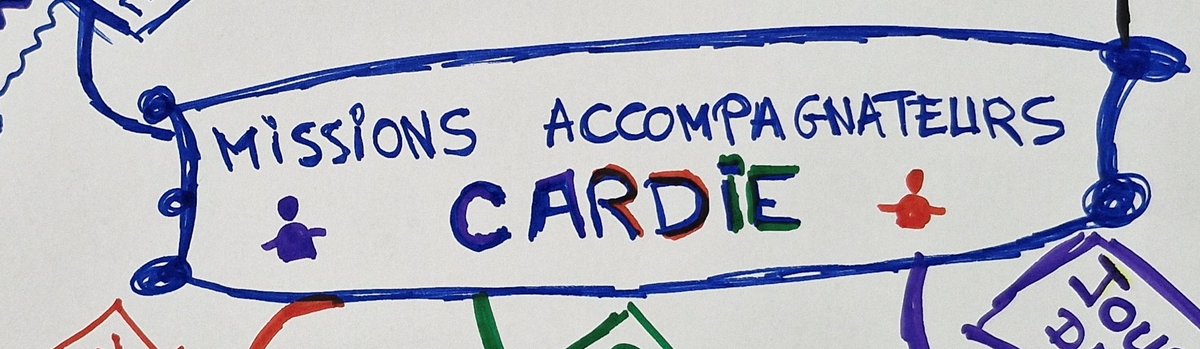 MISSIONS ACCOMPAGNATEURS
CARDIE